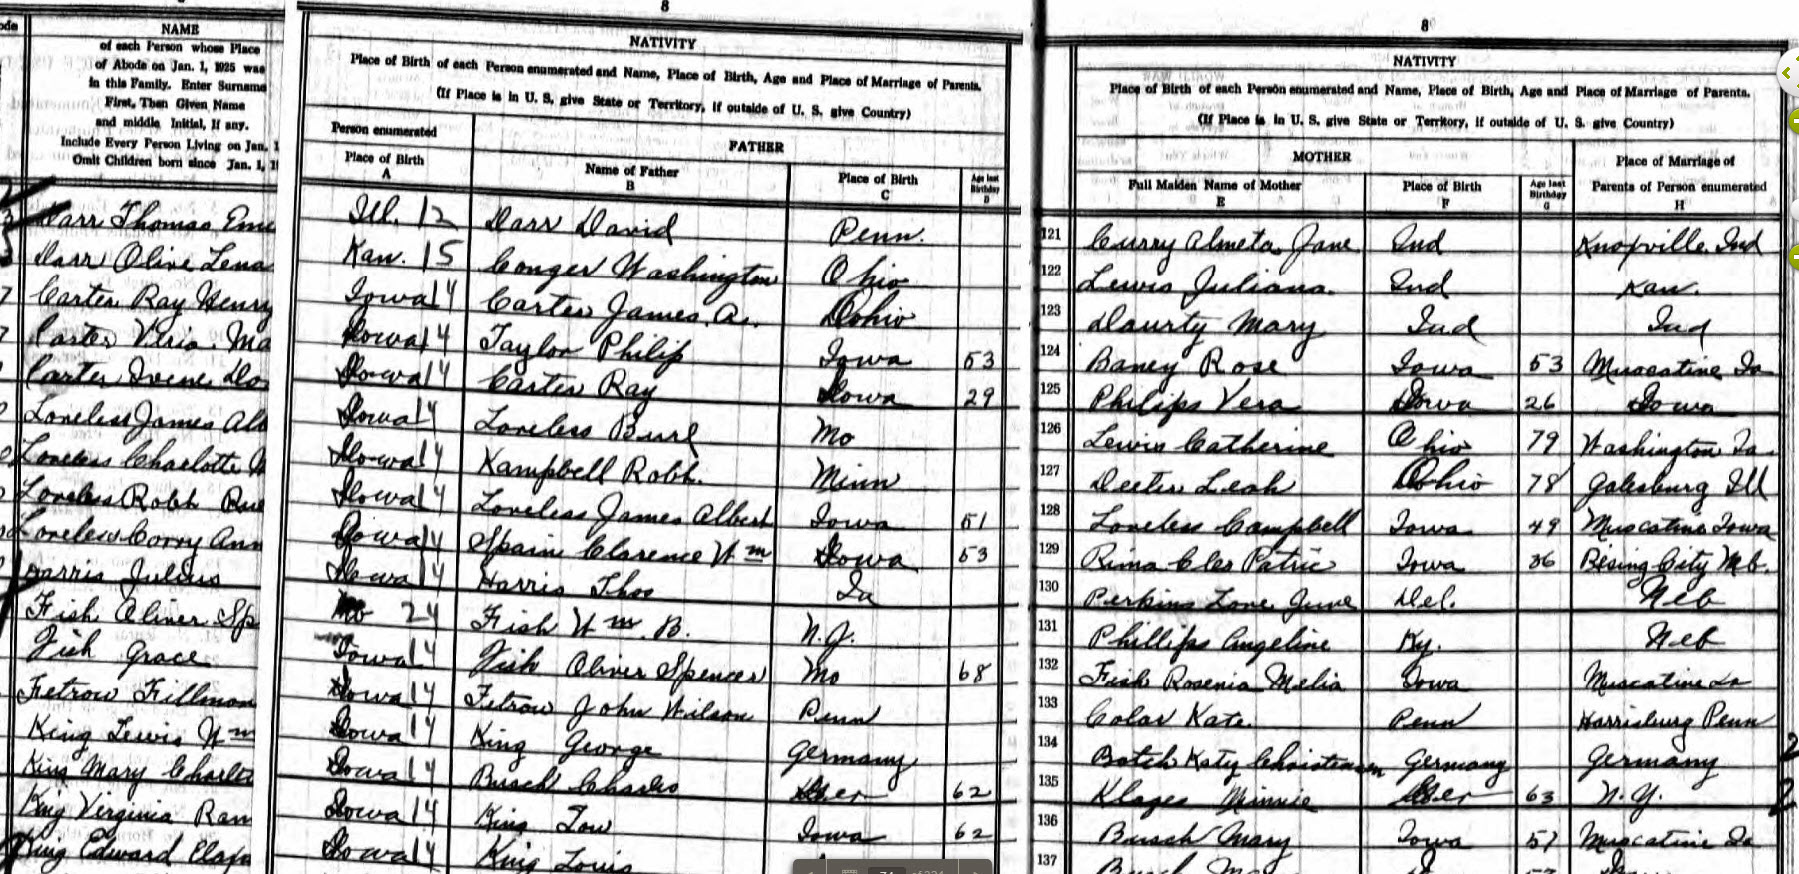 8
8
ode
NAME
of each Person whose Place
of Abode on Jan. 1, 1925 was
in this Family. Enter Surname
First, Then Given Name
and middle Initial, If any.
Include Every Person Living on Jan. 1
Omit Children born since Jan. 1, 1
NATIVITY
Place of Birth of each Person enumerated and Name, Place of Birth, Age and Place of Marriage of Parents.
(If Place is in U. S. give State or Territory, if outside of U. S. give Country)
Person enumerated
FATHER
Place of Birth
A
Name of Father
B
Place of Birth
C
Age last Birthday
D
NATIVITY
Place of Birth of each Person enumerated and Name, Place of Birth, Age and Place of Marriage of Parents.
(If Place is in U. S. give State or Territory, if outside of U. S. give Country)
MOTHER
Place of Marriage of
Full Maiden Name of Mother
E
Place of Birth
F
Age last Birthday
G
Parents of Person enumerated
H
Darr Thomas Eme Ill. 12 Darr David Penn. 121 Curry Almeta Jane Ind Knoxville Ind
Darr Olive Lena Kan. 15 Conger Washington Ohio 122 Lewis Juliana. Ind Kan.
Carter Ray Henry Iowa 14 Carter James. A. Ohio 123 Daurty Mary Ind Ind
Carter Ma Iowa 14 Taylor Philip Iowa 53 124 Baney Rose Iowa 53 Muscatine Ia
Carter Irene Do Iowa 14 Carter Ray Iowa 29 125 Philips Vera Iowa 26 Iowa
Loveless James Alb Iowa 14 Loveless Burl Mo 126 Lewis Catherine Ohio 79 Washington Ia.
Loveless Charlotte Iowa 14 Kampbell Robt. Minn 127 Deeter Leah Ohio 78 Galesburg Ill
Loveless Robt Iowa 14 Loveless James Albert Iowa 51 128 Loveless Campbell Iowa 49 Muscatine Iowa
Loveless Corry Ann Iowa 14 Spain Clarence Wm Iowa 53 129 Rima Cleo Patric Iowa 36 Rising City
Harris Julius Iowa 14 Harris Thos Ia 130 Perkins Lone June Del. Neb
Fish Oliver Sp Mo 24 Fish Wm. B. N.J. 131 Phillips Angeline Ky. Neb
Fish Grace Iowa 14 Fish Oliver Spencer Mo 68 132 Fish Rosenia Melia Iowa Muscatine Ia
Fetrow Fillmon Iowa 14 Fetrow John Wilson Penn 133 Colar Kate. Penn Harrisburg Penn
King Lewis Wm Iowa 14 King George Germany 134 Botch Katy Christiansen Germany Germany
King Mary Charlot Iowa 14 Busch Charles Ger 62 135 Klages Minnie Ger 63 N.Y. 2
King Virginia Ram Iowa 14 King Lou Iowa 62 136 Busch Mary Iowa 57 Muscatine Ia
King Edward Iowa 14 King Louis 137 Busch